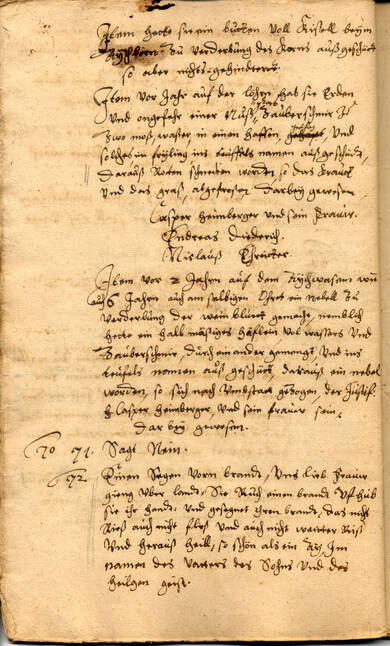 Item hette sie ein butten voll Kißell beym
Zu verderbung des Korns außgeschütt
so aber nichts gehindertet
Item vor Jahr auf der hab sie Erden
Und ungefehr einer Nuß Zauberschmir Zu
Zwo moß waßer, in einen haffen Und
solches im früling ins teuffels namen außgeschüdt,
darauß Roten worden so das Kraut
Und das graß, abgefresen darbey gewesen
Casper heimberger und sein frauw.
Endreas Diederich.
Niclauß
Item vor 2 Jahren auf dem
6 Jahren auch am selbigen Ohrt ein nebell Zu
verderbung der wein bluett gemacht, nemblich
hette ein halb mäßiges häflein vol waßers Und
Zauberschmir, durch einander gemengt, Und ins
teufels namen auß geschüt, darauß ein nebel
worden, so sich nach gezogen, der
Casper heimberger, Und sein frauw sein
dar bey gewesen.
70 71. Sagt Nein.
72 Einen Segen vorm brandt, Uns lieb frauw
gieng Uber landt, Sie einen brandt Uf hub
sie ihr handt, und gesegnet ihren brandt, das nicht
Rieß auch nicht fleß Und auch nicht weitter Riß
Und herauß heill, so schön als ein Ay, Im
namen des Vatters des Sohns Und des
heilgen geist.